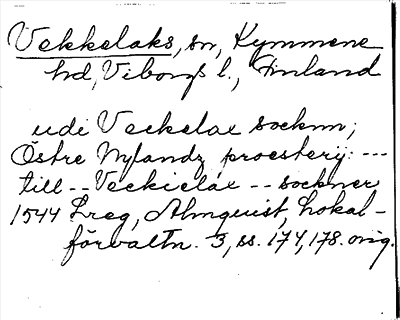 Vekkelaks, sn, Kymmene
hd, Viborgs l., Finland
udi Veckelax socknn;
Östre Nylandz proesterij: ---
till -- Veckielax -- sockner
1544 Lreg, Almquist, Lokal-
förvaltn. 3, ss. 174, 178. orig.